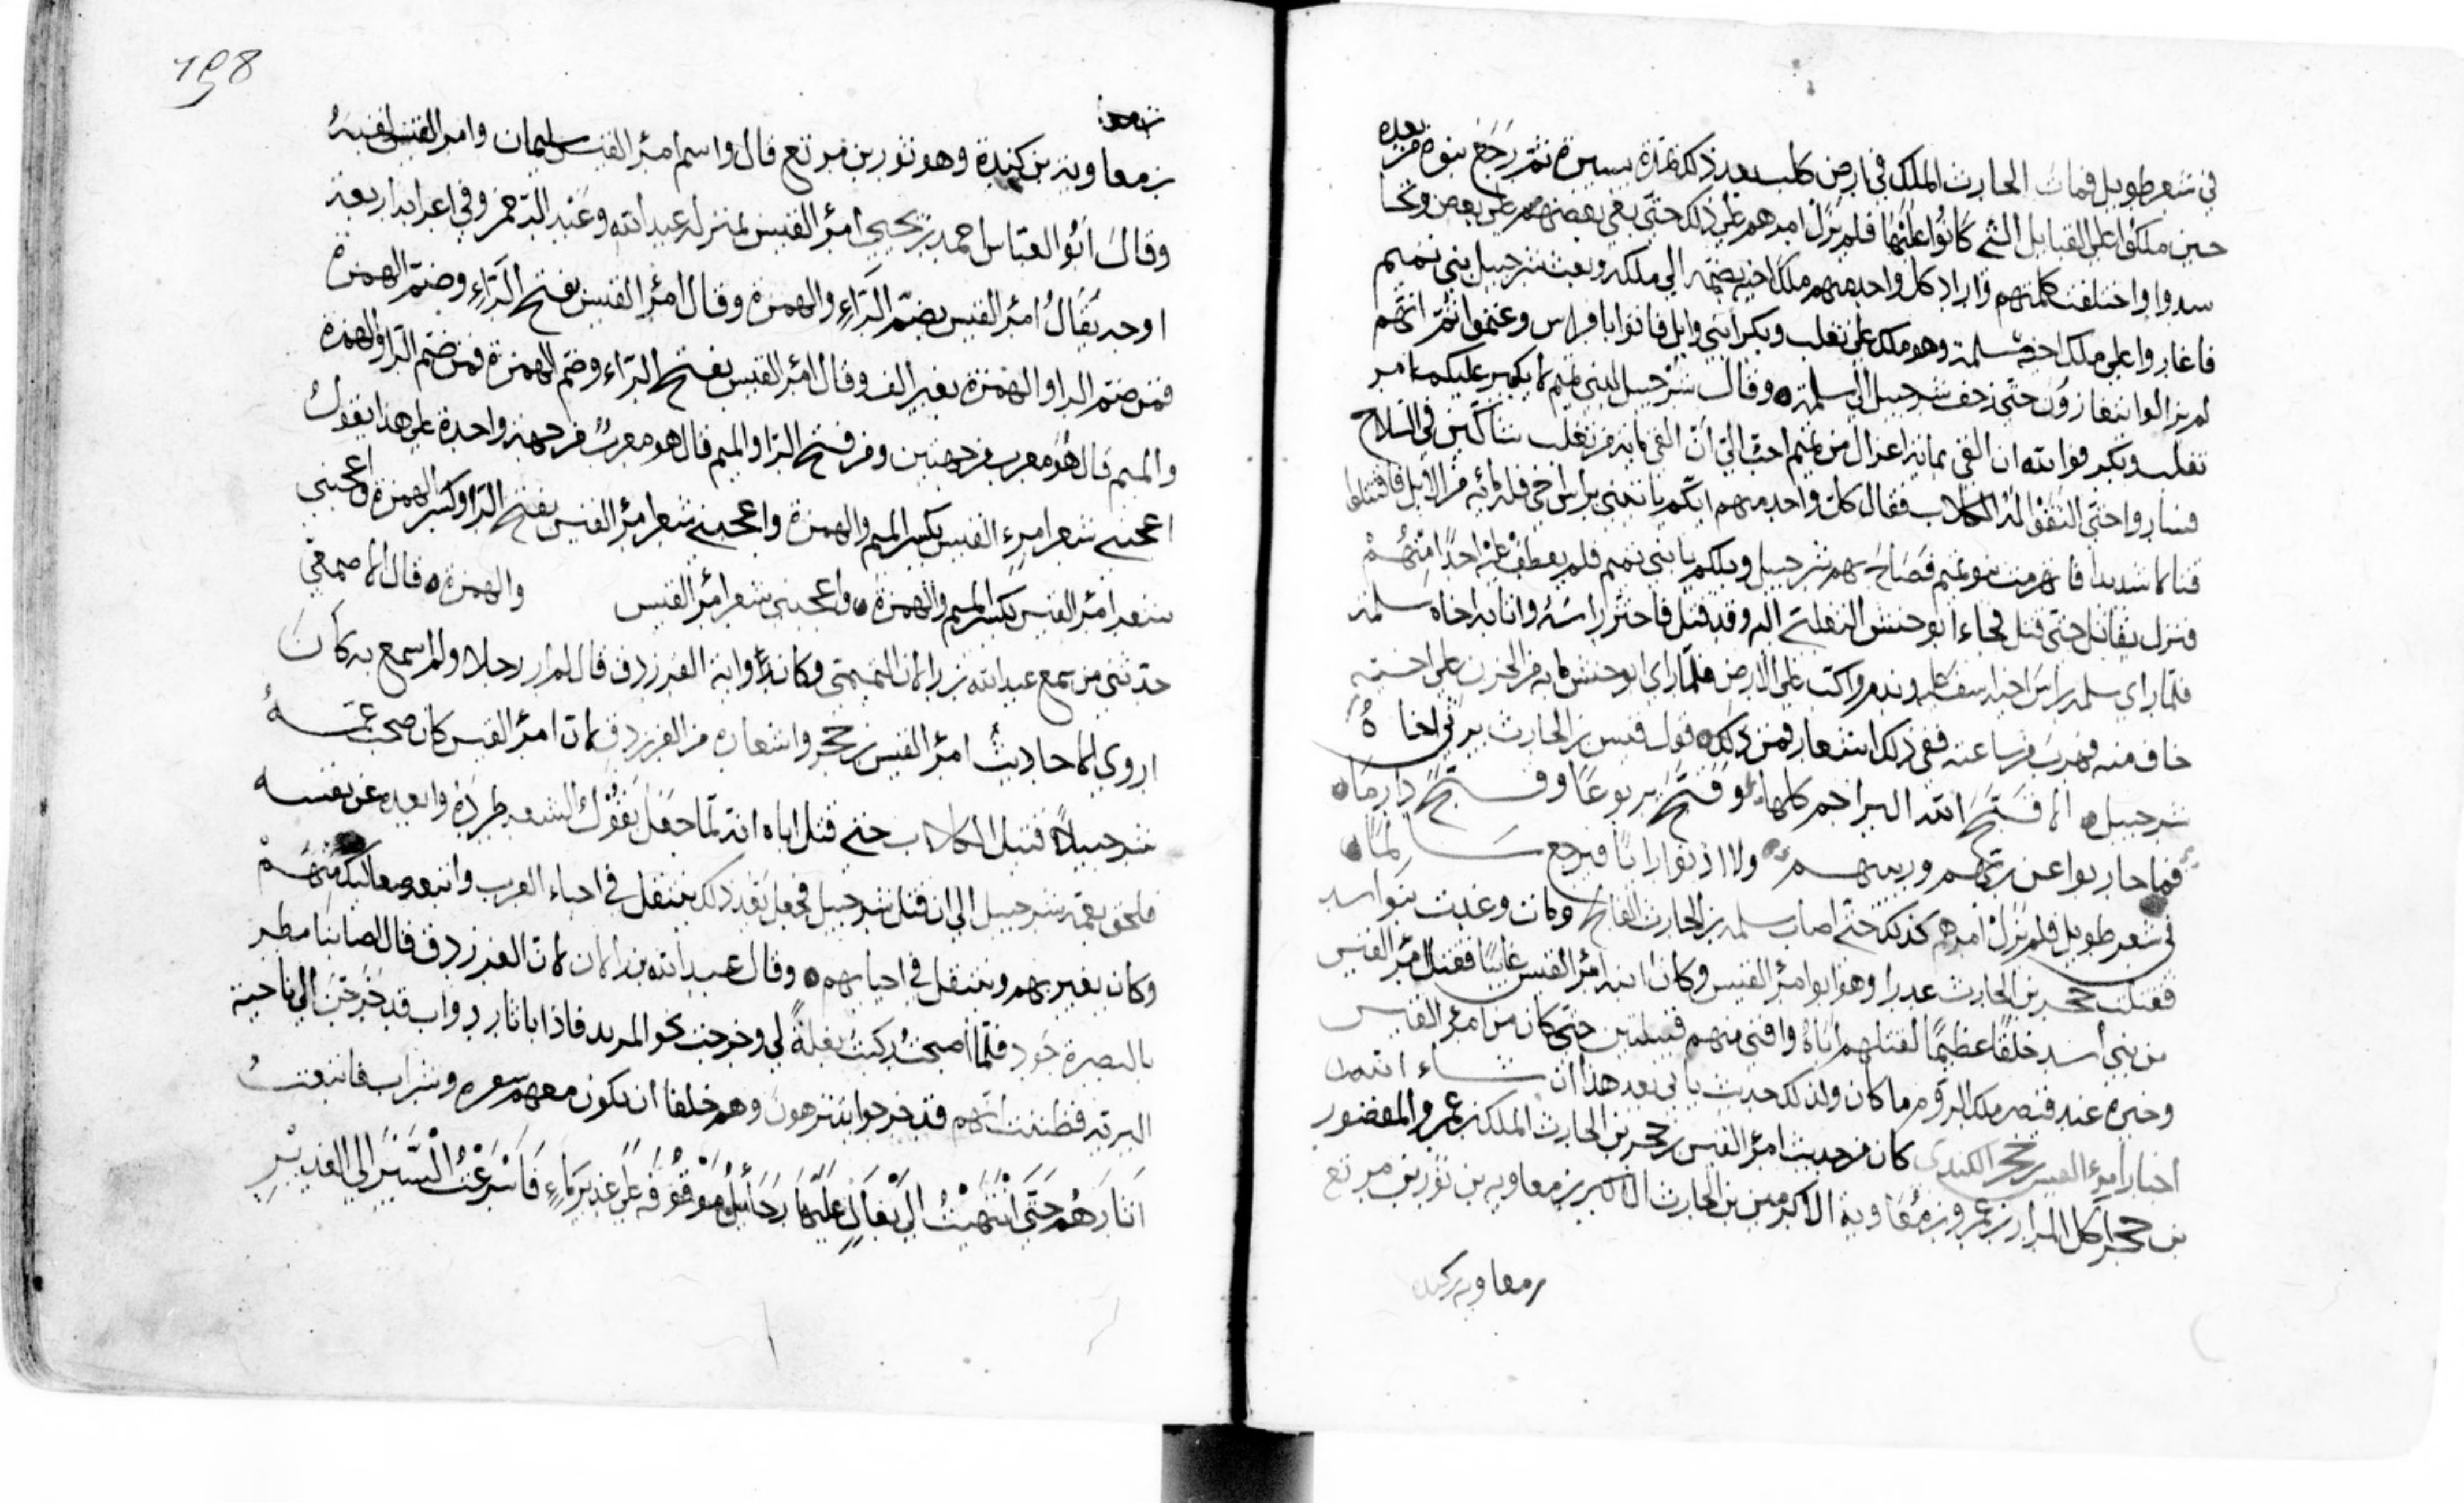 في شعر طويل فمات الحارث الملك في ارض كلب بعد ذلك بمدة يسيرة ثم رجع بنوه من بعده
حين ملكوا على القبايل التي كانوا عليها فلم يزل امرهم على ذلك حتى بغي بعضهم على بعض
واختلفت كلمتهم واراد كل واحد منهم ملك اخيه يضمه الي ملكه وبعث شرحبيل بني تميم
فاغاروا على ملك اخيه سلمة وهو ملك على تغلب وبكر ابني وايل فاتوا بافراس وغنموا ثم انهم
لم يزالوا يتغازون حتى زحف شرحبيل الي سلمة وقال شرحبيل لبني تميم لا يكبر عليكم امر
تغلب وبكر فوالله ان القي بماية اعزال من تميم احب الي ان القي ماية من تغلب شاكين في السلاح
فساروا حتى التقوا الكلاب فقال كل واحد منهم ايكم ياتيني براس اخي فله مائة من الابل فاقتتلوا
قتالا شديدا فانهزمت بنو تميم فصاح بهم شرحبيل ويلكم يا بني تميم فلم يعطف عليه احد منهم
فنزل يقاتل حتى قتل فجاء ابو حنش التغلبي اليه وقد قتل فاحتز راسه واتا به اخاه سلمة
فلما راي سلمة راس اخيه اسف عليه وندم واكب على الارض فلما راي ابو حنش ما به من الحزن على اخيه
خاف منه فهرب فرسا عنه ففي ذلك اشعار فمن ذلك قول قيس بن الحارث يرثي اخاه
شرحبيل الا قبح الله البراجم كلها وقبح يربوعا وقبح دارما
فما حاربوا عن ربهم وربيبهم ولا اذنوا رانا فيرجع سالما
في شعر طويل فلم يزل امرهم كذلك حتى اصاب سلمة بن الحارث الفالج وكان وعديت بنو اسد
فقتلت حجر بن الحارث غدرا وهو ابو امرؤ القيس وكان ابنه امرؤ القيس غايبا فقتل امرؤ القيس
من بني اسد خلقا عظيما لقتلهم اباه وافني منهم قبيلتين حتى كان من امرؤ القيس
وخبره عند قيصر ملك الروم ما كان ولذلك حديث ياتي بعد هذا ان شاء الله
اخبار امرئ القيس بن حجر الكندي كان من حديث امرؤ القيس بن حجر بن الحارث الملك بن عمرو المقصور
بن حجر اكل المرار بن عمرو بن معاوية الاكرمين بن الحارث الاكبر بن معاوية بن ثور بن مرتع
بن معاوية بن كندة
198
بن معاوية بن كندة وهو ثور بن مرتع قال واسم امرؤ القيس سليمان وامرؤ القيس لقبه
وقال ابو العباس احمد بن يحيي امرؤ القيس بمنزلة عبد الله وعبد الرحمن وفي اعرابه اربعة
اوجه يقال امرؤ القيس بضم الراء والهمزة وقال امرؤ القيس بفتح الراء وضم الهمزة
فمن ضم الرا والهمزة بغير الف وقال امرؤ القيس بفتح الراء وضم الهمزة فمن ضم الرا والهمزة
والميم قال هو معرب من جهتين ومن فتح الرا والميم قال هو معرب من جهة واحدة على هذا يقول
اعجبني شعر امرء القيس بكسر الميم والهمزة واعجبني شعر امرؤ القيس بفتح الرا وكسر الهمزة واعجبني
شعر امرؤ القيس بكسر الميم والهمزة واعجبني شعر امرؤ القيس والهمزة قال الاصمعي
حدثني من سمع عبد الله بن رالان التميمي وكان راوية الفرزدق قال لم ار رجلا ولم اسمع به كان
اروي لاحاديث امرؤ القيس بن حجر واشعاره من الفرزدق لان امرؤ القيس كان صحب عمه
شرحبيلا قتيل الكلاب حتى قتل اباه انه لما جعل يقول الشعر طرده وابعده عن نفسه
فلحق بعمه شرحبيل الي ان قتل شرحبيل فجعل بعد ذلك يتنقل في احياء العرب واتبعه صعاليك منهم
وكان يغير بهم ويتنقل في احيايهم وقال عبد الله بن رالان لان الفرزدق قال اصابنا مطر
بالبصرة جود فلما اصبحت ركبت بغلة لي وخرجت نحو المربد فاذا باثار دواب قد خرجن الي ناحية
البرية فظننت انهم قد خرجوا يتنزهون وهم خلقا ان تكون معهم سفرة وشراب فاتبعت
اثارهم حتى انتهيت الي بغال عليها رحائل موقوفة على غدير ماء فاسرعت السير الي الغدير